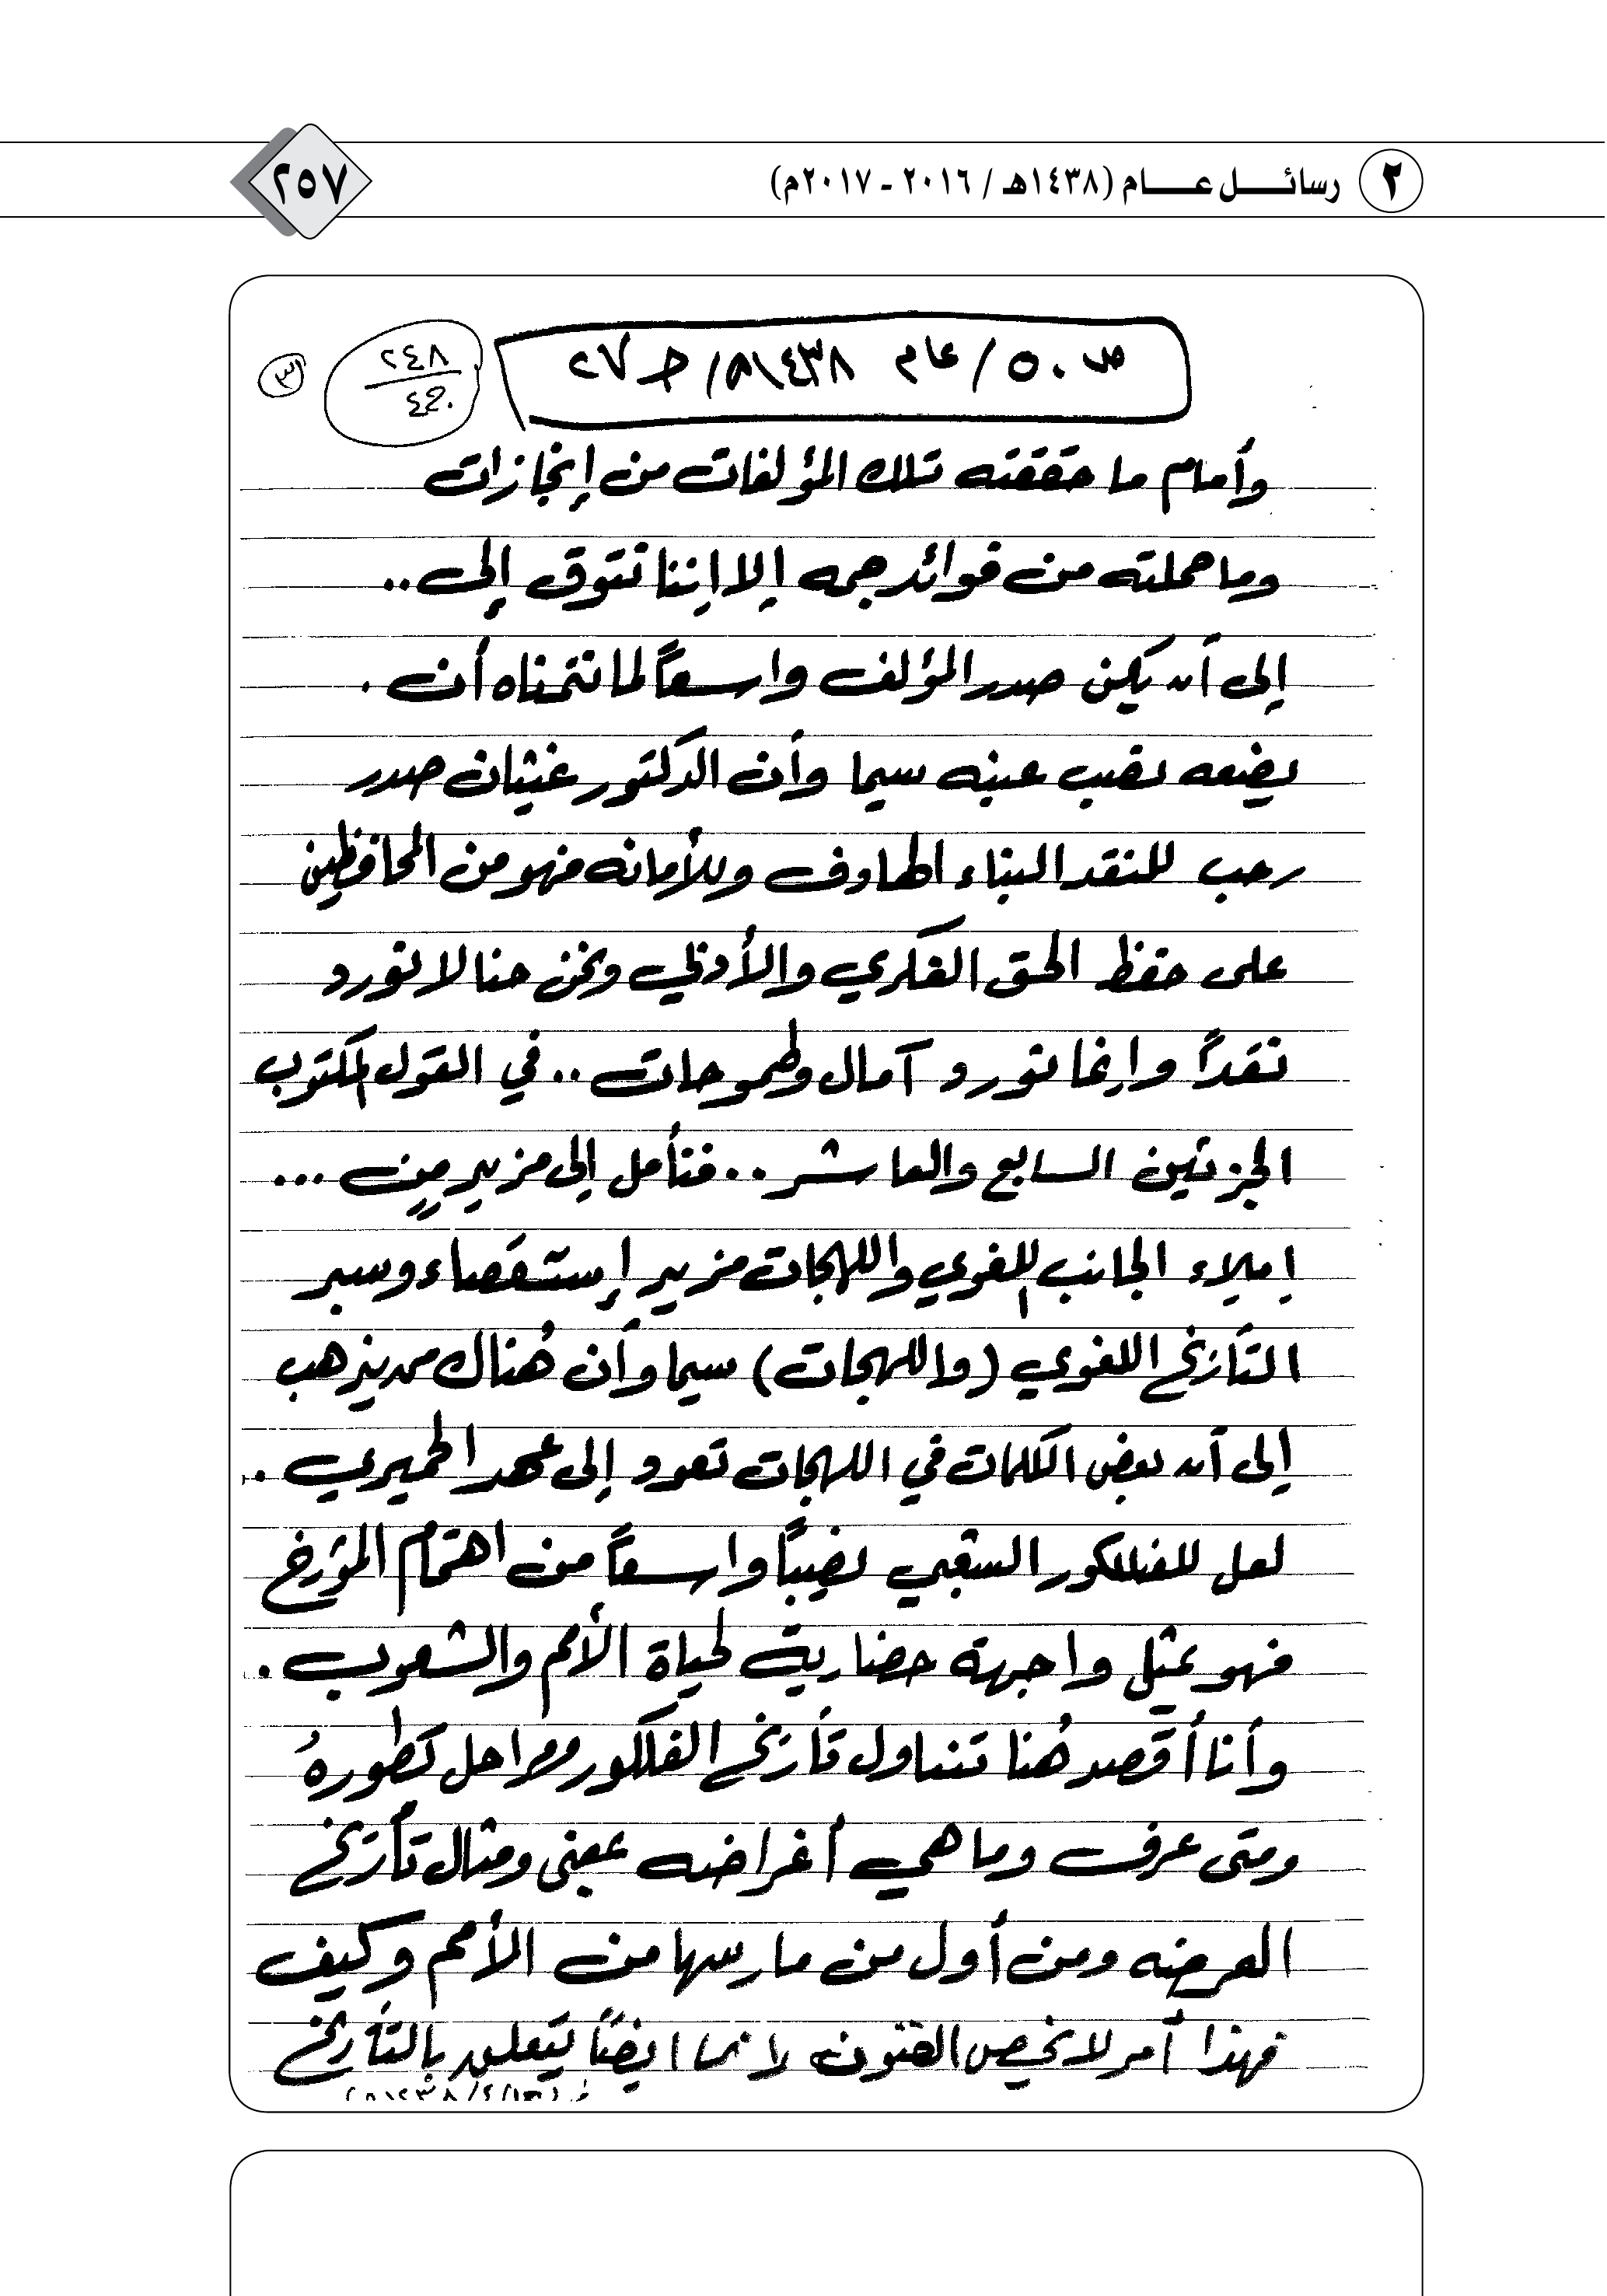 ٢ رسائـــل عـــــام (١٤٣٨هـ / ٢٠١٦ ـ ٢٠١٧م)
٢٥٧
ص ٥٠ / عام ١٤٣٨هـ / حـ ٢٧
٢٤٨
٣
وأمام ما حققته تلك المؤلفات من إنجازات
وما حملته من فوائد جمه إلا إننا نتوق إلى ..
إلى أن يكن صدر المؤلف واسعاً لما نتمناه أن .
يضعه نصب عينه سيما وأن الدكتور غيثان صدر
رحب للنقد البناء الهادف وللأمانه فهو من المحافظين
على حفظ الحق الفكري والأدبي ونحن هنا لا نورد
نقداً وإنما نورد آمال وطموحات .. في القول المكتوب
الجزئين السابع والعاشر .. فنأمل إلى مزيدٍ من ...
إيلاء الجانب اللغوي واللهجات مزيد إستقصاء وسبر
التأريخ اللغوي (واللهجات) سيما وأن هُناك من يذهب
إلى أن بعض الكلمات في اللهجات تعود إلى عهد الحميري .
لعل للفلكلور الشعبي نصيباً واسعاً من اهتمام المؤرخ
فهو يمثل واجهة حضارية لحياة الأمم والشعوب .
وأنا أقصد هُنا تناول تأريخ الفلكلور ومراحل تطورهُ
ومتى عرف وما هي أغراضه بمعنى ومثال تأريخ
العرضه ومن أول من مارسها من الأمم وكيف
فهذا أمر لا يخص الفنون لا نما ايضاً يتعلق بالتأريخ